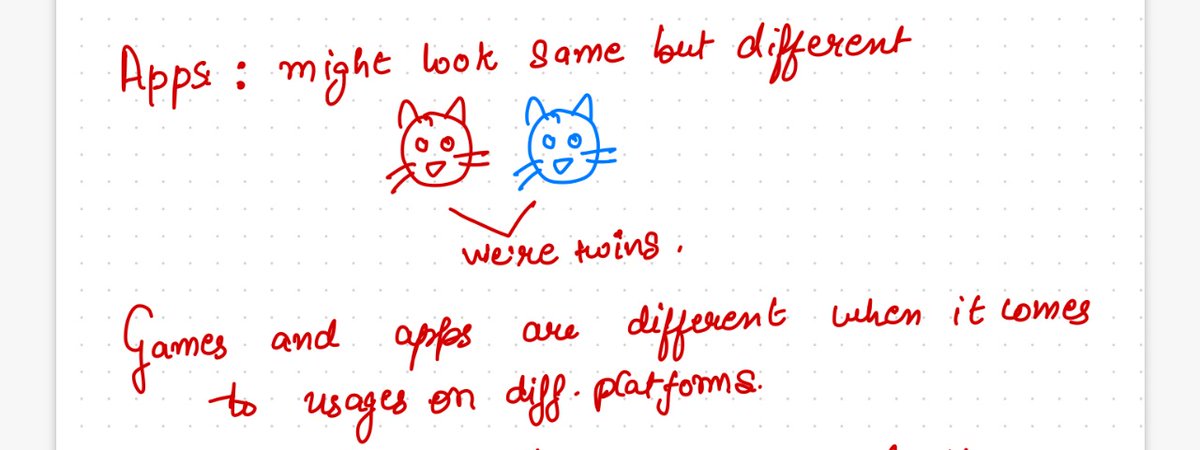 Apps: might look same but different
we're twins.
Games and apps are different when it comes
to usages on diff. platforms.